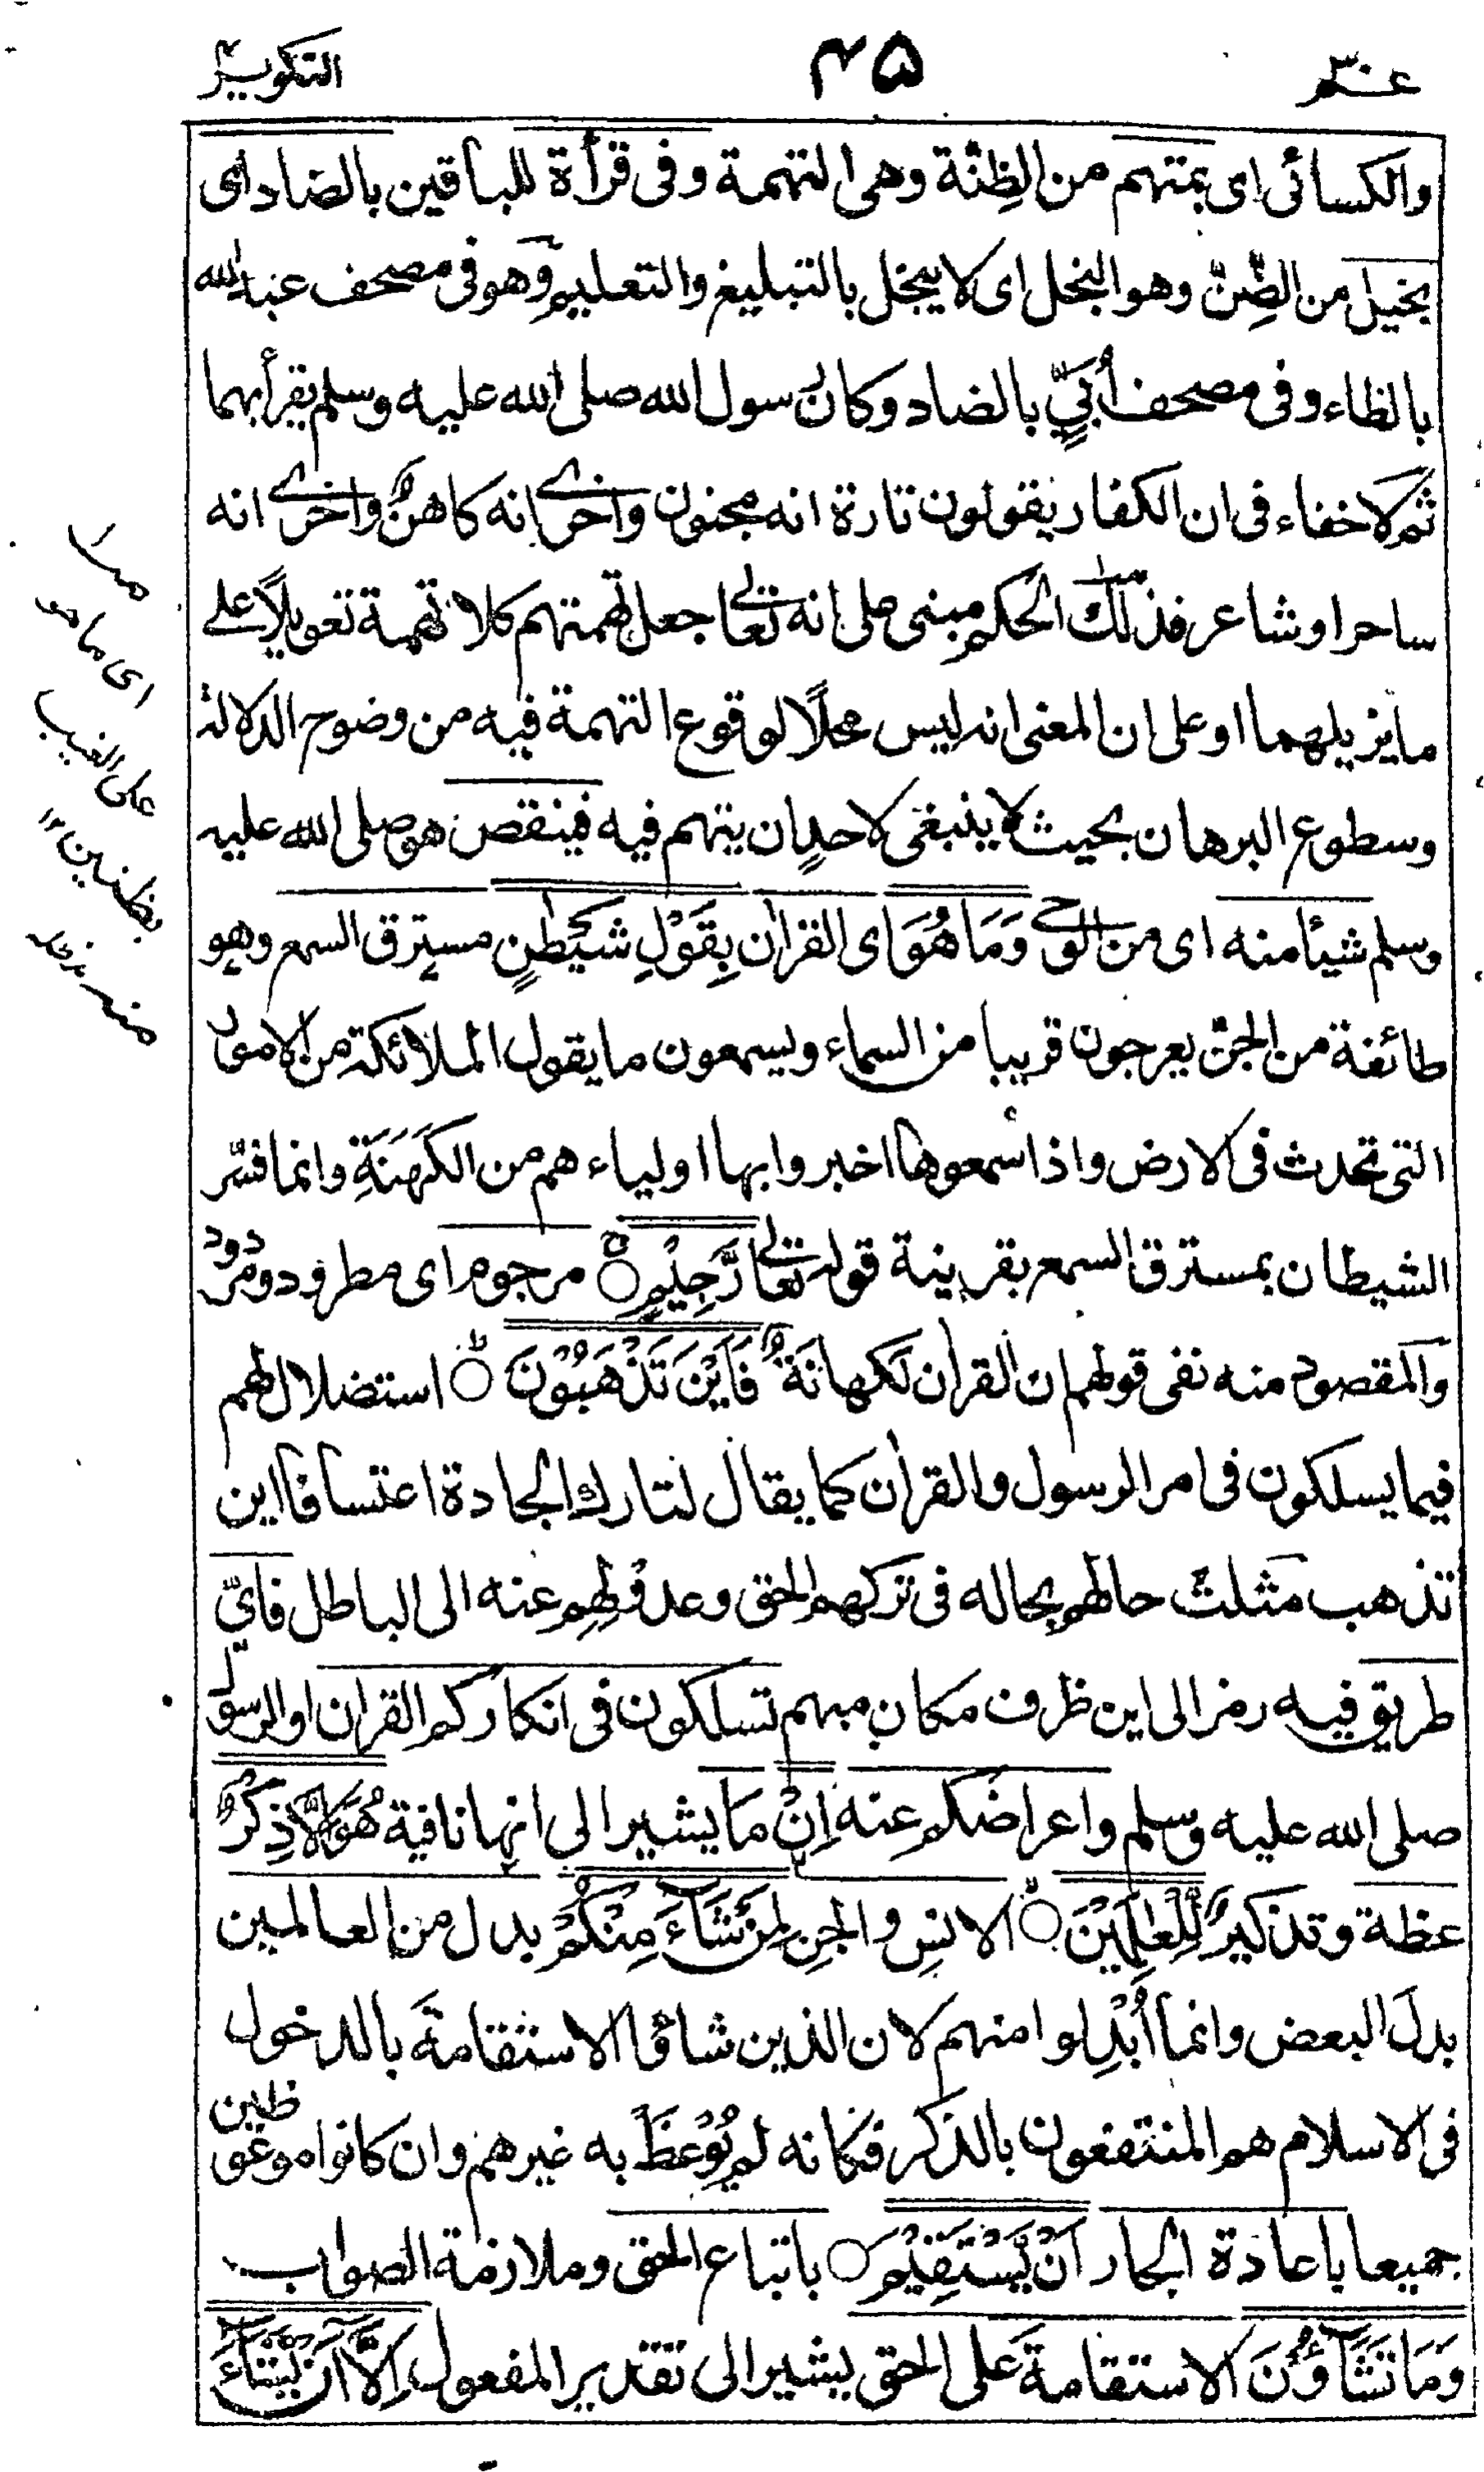 عـم ٣٠
٤٥
التكوير
والكسائى اى بمتهم من الظِنّة وهى التهمة وفى قرأة للباقين بالضاد اى
بخيل من الضِّنّ وهو البخل اى لا يبخل بالتبليغ والتعليم وهو فى مصحف عبد الله
بالظاء وفى مصحف أُبَيٍّ بالضاد وكان رسول الله صلى الله عليه وسلم يقرأ بهما
ثم لا خفاء فى ان الكفار يقولون تارة انه مجنون واخرى انه كاهنٌ واخرى انه
ساحر او شاعر فذلك الحكم مبنى على انه تعالى جعل تهمتهم كلا تهمة تعويلًا على
ما يزيلهما او على ان المعنى انه ليس محلًا لوقوع التهمة فيه من وضوح الدلالة
وسطوع البرهان بحيث لا ينبغى لاحدٍ ان يتهم فيه فينقص هو صلى الله عليه
وسلم شيئا منه اى من الوحى وَمَا هُوَ اى القران بِقَوْلِ شَيْطٰنٍ مسترق السمع وهو
طائفة من الجن يعرجون قريبا من السماء ويسمعون ما يقول الملائكة من الامور
التى تحدث فى الارض واذا سمعوها اخبروا بها اولياءهم من الكَهَنَةِ وانما فسّر
الشيطان بمسترق السمع بقرينة قوله تعالى رَّجِيْمٍ ○ مرجوم اى مطرود ومردود
والمقصود منه نفى قولهم ان القران لكهانةٌ فَاَيْنَ تَذْهَبُوْنَ ○ استضلال لهم
فيما يسلكون فى امر الرسول والقران كما يقال لتارك الجادة اعتسافا اين
تذهب مثلت حالهم بحاله فى تركهم الحق وعدولهم عنه الى الباطل فاىّ
طريق فيه رمز الى اين ظرف مكان مبهم تسلكون فى انكاركم القران او الرسول
صلى الله عليه وسلم واعراضكم عنه اِنْ ما يشير الى انها نافية هُوَ اِلَّا ذِكْرٌ
عظة وتذكيرٌ لِّلْعٰلَمِيْنَ ○ الانس والجن لِمَنْ شَآءَ مِنْكُمْ بدل من العالمين
بدلَ البعض وانما اُبْدِلوا منهم لان الذين شاؤا الاستقامة بالدخول
فى الاسلام هم المنتفعون بالذكر فكانه لم يُوْعَظْ به غيرهم وان كانوا موعوظين
جميعا باعادة الجار اَنْ يَّسْتَقِيْمَ ○ باتباع الحق وملازمة الصواب
وَمَا تَشَآؤُنَ الاستقامةَ على الحق يشير الى تقدير المفعول اِلَّآ اَنْ يَّشَآءَ
اى ما هو
على الغيب
بظنين ١٢